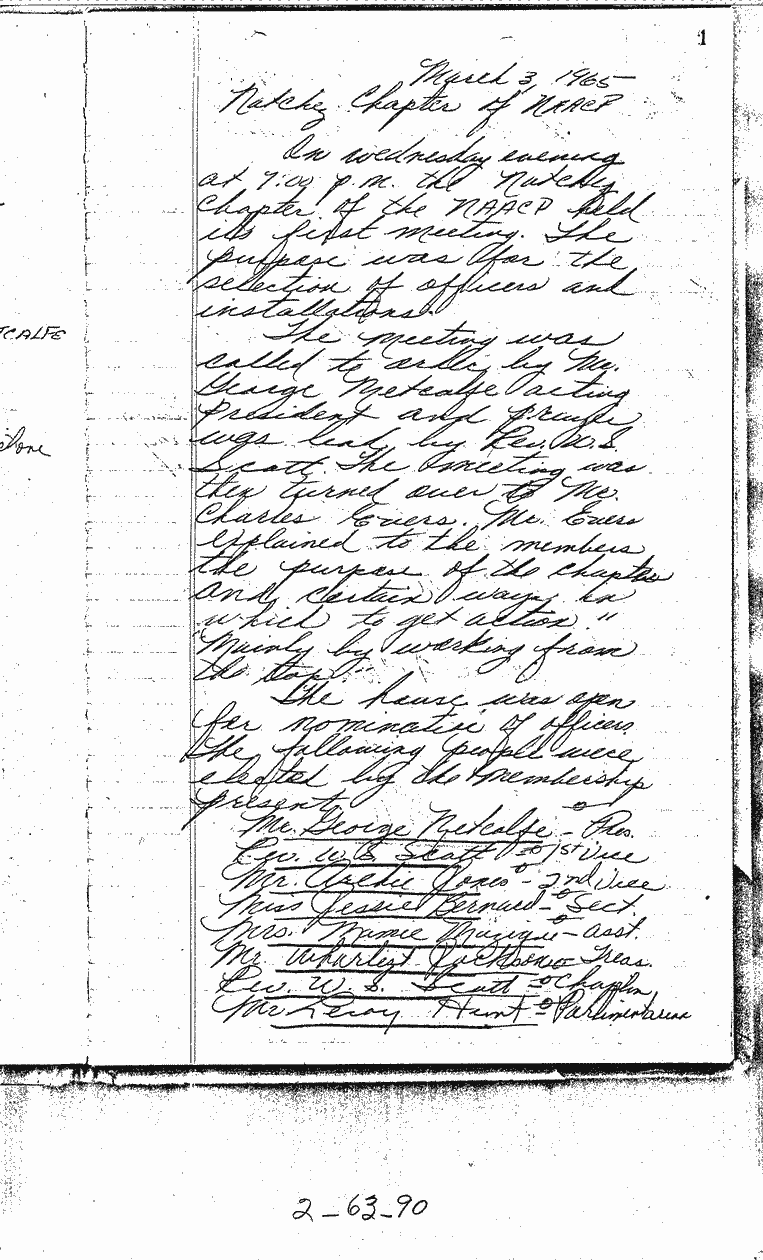 1
March 3, 1965
Natchez Chapter of NAACP
On wednesday evening
at 7:00 p.m. the Natchez
Chapter of the NAACP held
its first meeting. The
purpose was for the
selection of officers and
installations.
The meeting was
called to order by Mr.
George Metcalfe acting
President and prayer
was lead by Rev. W.S.
Scott. The meeting was
then turned over to Mr.
Charles Evers. Mr. Evers
explained to the members
the purpose of the chapter
and certain ways in
which to get action. "
Mainly by working from
the top."
The house was open
for nominatiee of officers
the following people were
elected by the membership
present
Mr. George Metcalfe - Pres.
Rev. W.S. Scott - 1st Vice
Mr. Archie Jones - 2nd Vice
Miss Jessie Bernard - Sect.
Mrs. Mamie Mazique - asst.
Mr. Jackson Treas.
Rev. W. S. Scott - Chaplin
Mr Leroy Hunt - Parlimentarian
TCALFE
2-63-90